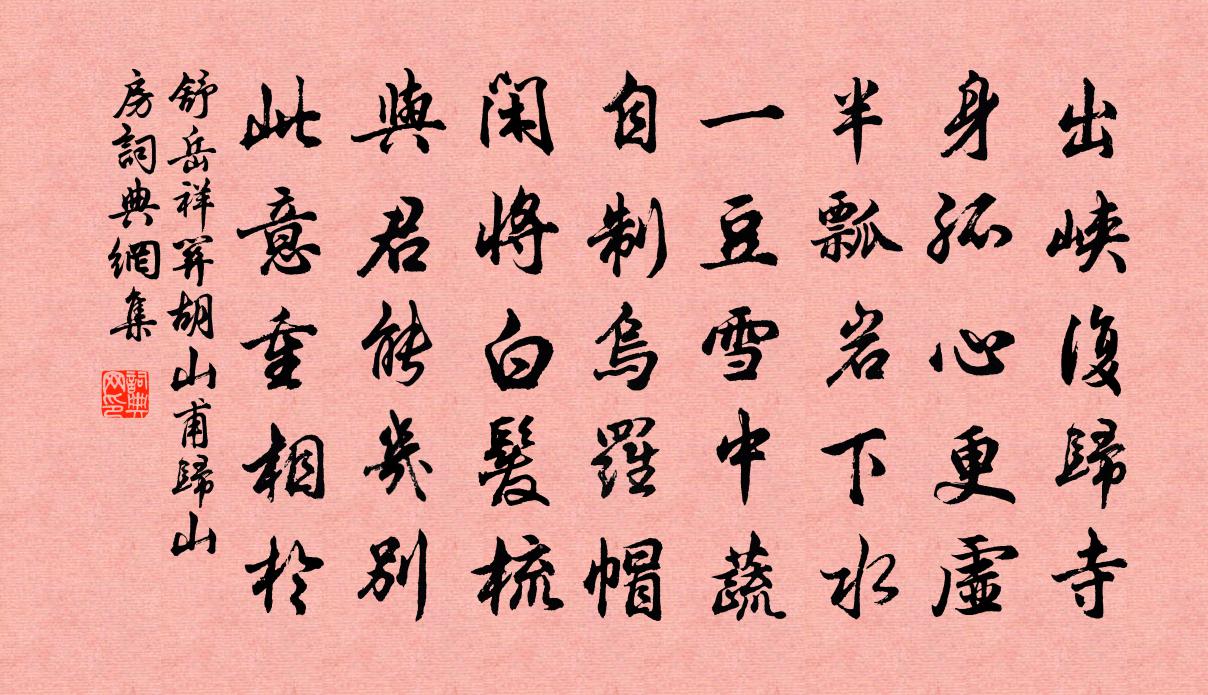 出峽復歸寺
身孤心更虛
半瓢岩下水
一豆雪中蔬
自制烏羅帽
閑將白髮梳
與君能幾別
此意重相於
舒岳祥筓胡山甫歸山
房詞典網集
詞典網印